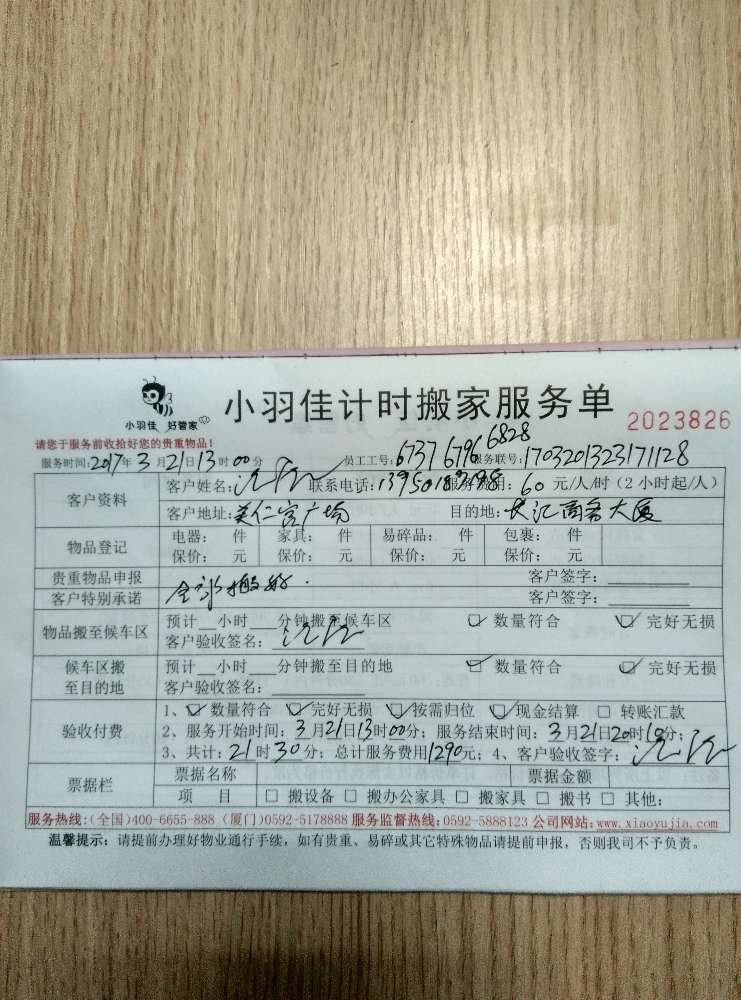 小羽佳 好管家
小羽佳计时搬家服务单
2023826
请您于服务前收拾好您的贵重物品!
6828
服务时间:2017年3月21日13时00分 员工工号:6737 6796 服务联号:1703201323171128
客户资料 客户姓名: 联系电话: 服务费用:60元/人/时(2小时起/人)
客户地址:美仁宫广场 目的地:长汇商务大厦
物品登记 电器: 件 家具: 件 易碎品: 件 包裹: 件
保价: 元 保价: 元 保价: 元 保价: 元
贵重物品申报 客户签字:
客户特别承诺 全部搬好. 客户签字:
物品搬至候车区 预计 小时 分钟搬至候车区 ☑ 数量符合 ☑ 完好无损
客户验收签名:
候车区搬至目的地 预计 小时 分钟搬至目的地 ☑ 数量符合 ☑ 完好无损
客户验收签名:
验收付费 1、☑ 数量符合 ☑ 完好无损 ☑ 按需归位 ☑ 现金结算 □ 转账汇款
2、服务开始时间:3月21日13时00分;服务结束时间:3月21日20时10分;
3、共计:21时30分;总计服务费用1290元;4、客户验收签字:
票据栏 票据名称 票据金额
项 目 □ 搬设备 □ 搬办公家具 □ 搬家具 □ 搬书 □ 其他:
服务热线:(全国)400-6655-888 (厦门)0592-5178888 服务监督热线:0592-5888123 公司网站:www.xiaoyujia.com
温馨提示:请提前办理好物业通行手续,如有贵重、易碎或其它特殊物品请提前申报,否则我司不予负责。